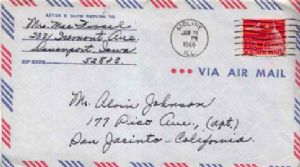 AFTER 5 DAYS RETURN TO
Mrs. Mae
2331 Tremont Ave.
Davenport, Iowa
ZIP CODE 52803
MOLINE
JAN
PM
1966
ILL.
VIA AIR MAIL
Mr. Alvin Johnson
177 Pico Ave., (apt.)
San Jacinto - California